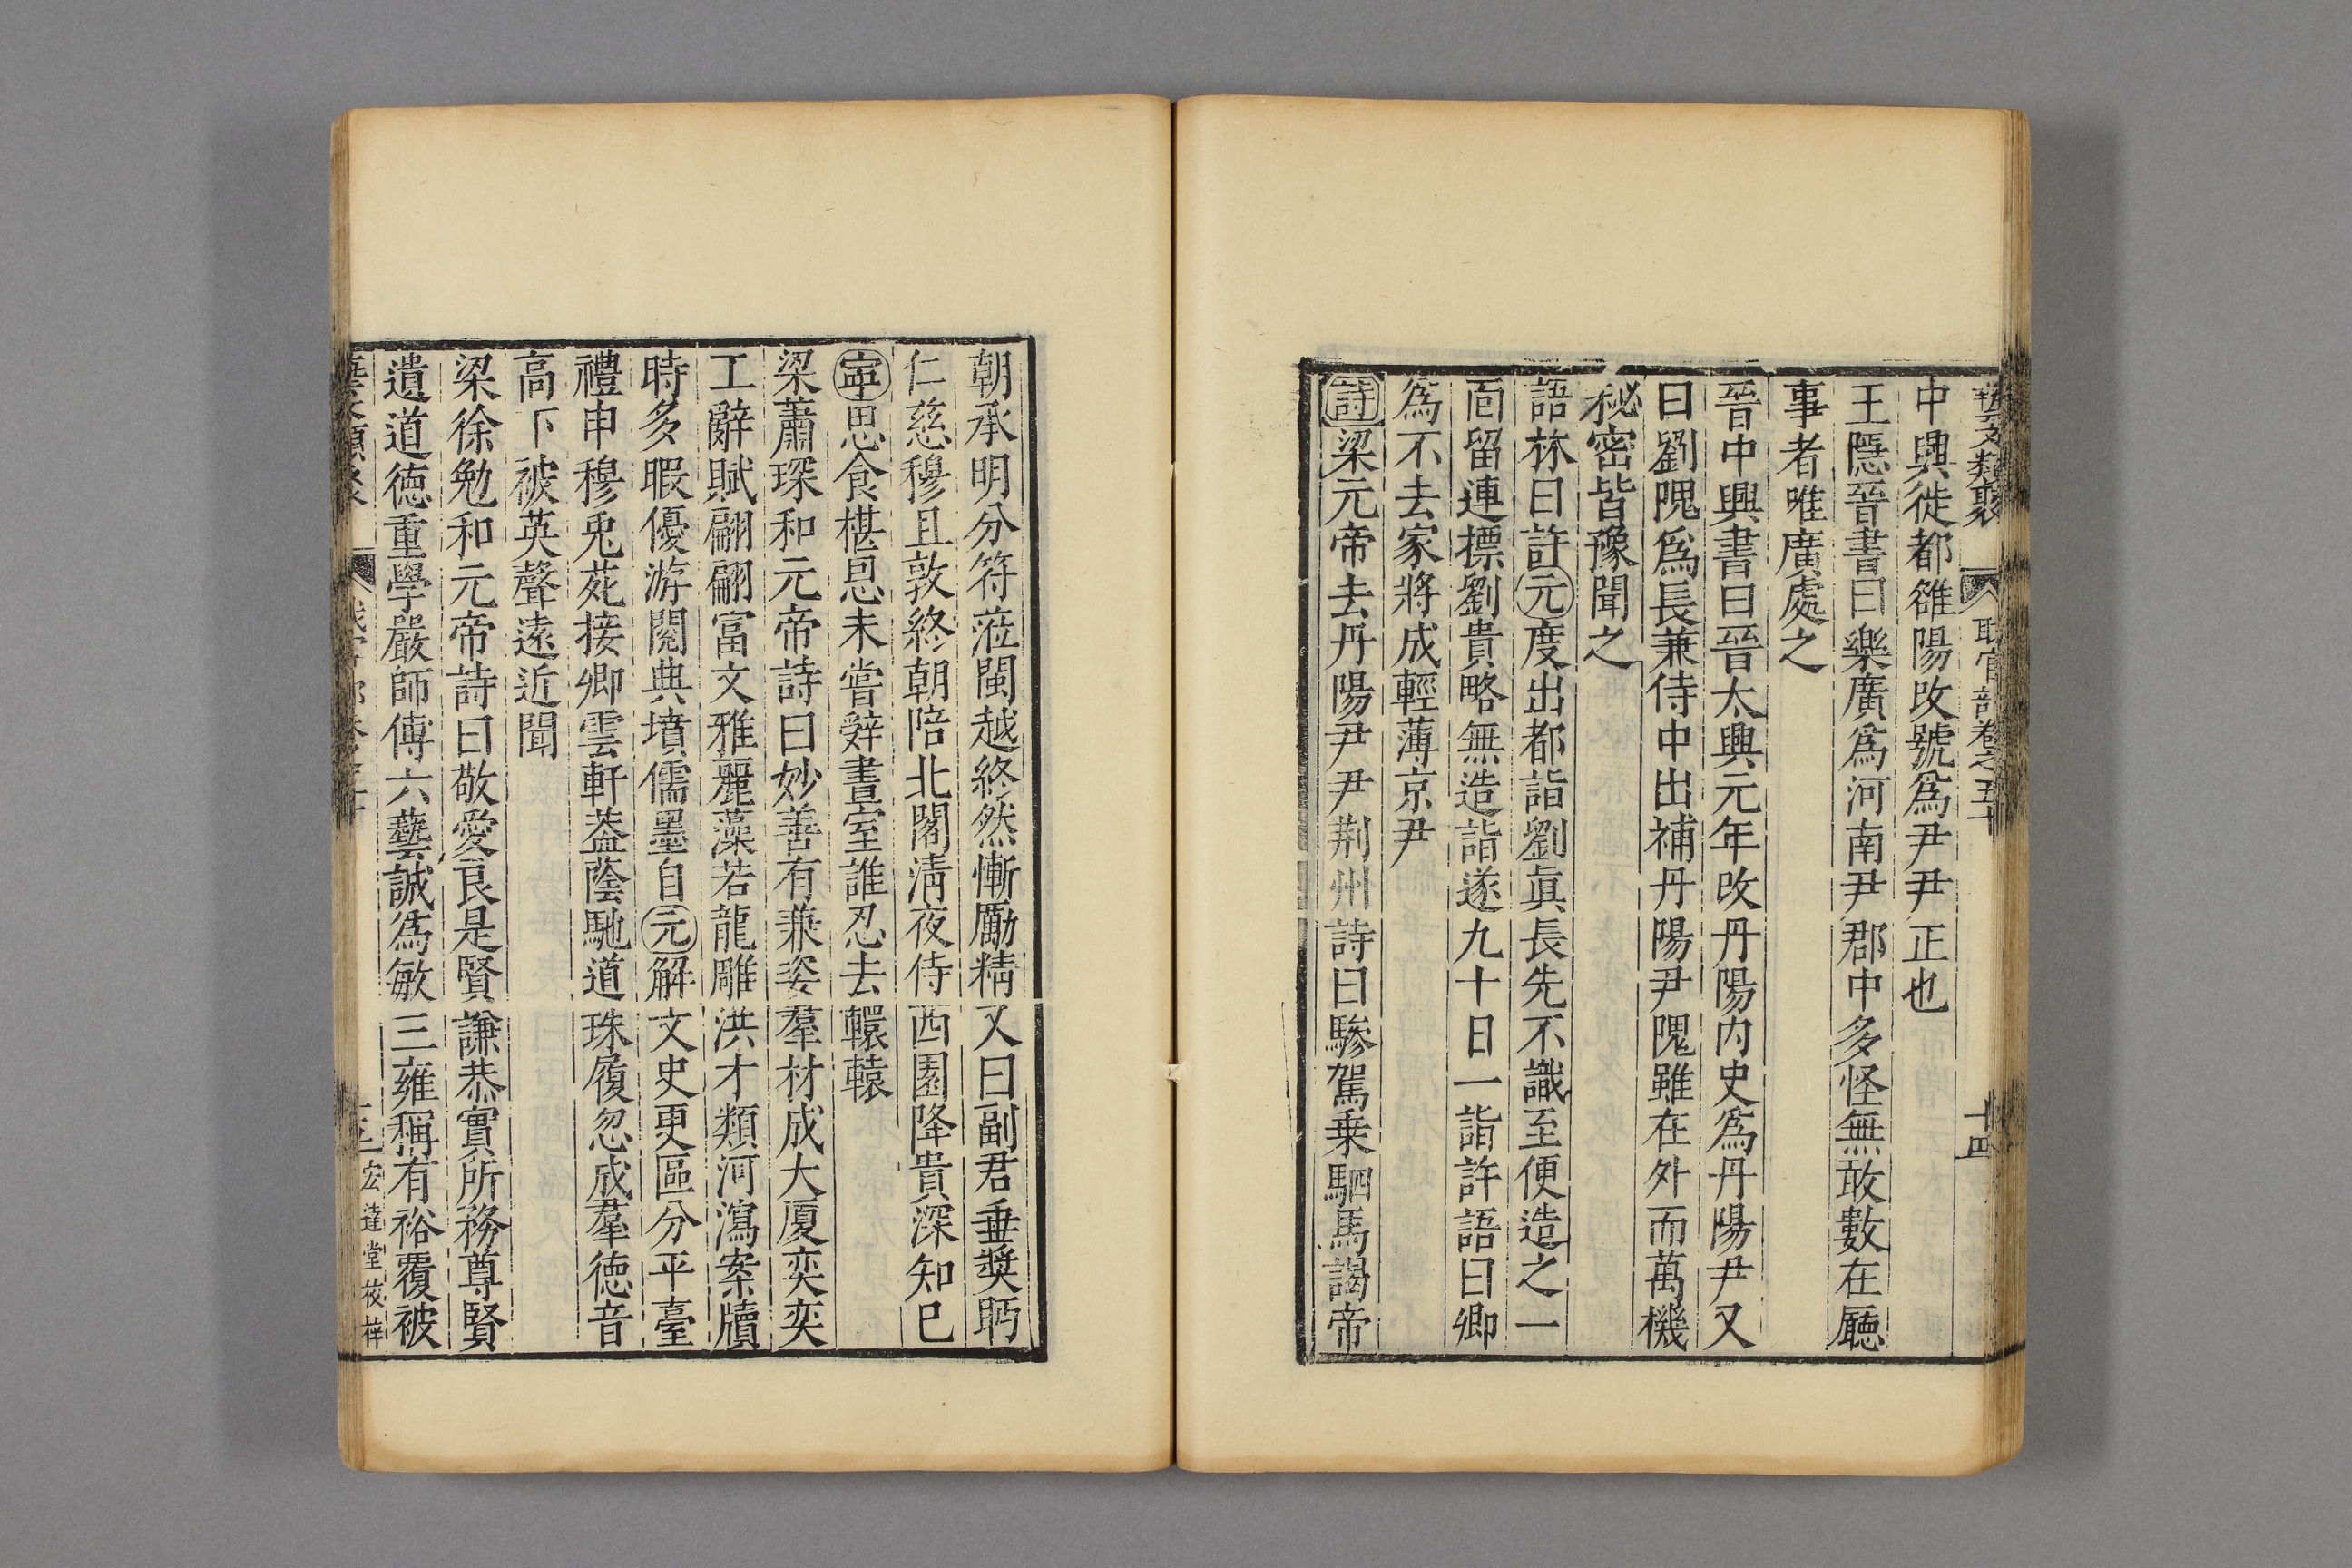 藝文類聚 職官部卷之五十 十四
中興徙都雒陽改號爲尹尹正也
王隱晉書曰樂廣爲河南尹郡中多怪無敢數在廳
事者唯廣處之
晉中興書曰晉太興元年改丹陽內史爲丹陽尹又
曰劉隗爲長兼侍中出補丹陽尹隗雖在外而萬機
秘密皆豫聞之
語林曰許元度出都詣劉眞長先不識至便造之一
面留連摽劉貴略無造詣遂九十日一詣許語曰卿
爲不去家將成輕薄京尹
詩梁元帝去丹陽尹尹荆州詩曰驂駕乗駟馬謁帝
朝承明分符蒞閩越終然慚勵精 又曰副君垂奬眄
仁慈穆且敦終朝陪北閣淸夜侍西園降貴深知已
寧思食椹恩未嘗辤晝室誰忍去轘轅
梁蕭琛和元帝詩曰妙善有兼姿羣材成大厦奕奕
工辭賦翩翩富文雅麗藻若龍雕洪才類河瀉案牘
時多暇優游閱典墳儒墨自元解文史更區分平臺
禮申穆兎苑接卿雲軒葢蔭馳道珠履忽成羣德音
高下被英聲遠近聞
梁徐勉和元帝詩曰敬愛良是賢謙恭實所務尊賢
遺道德重學嚴師傅六藝誠爲敏三雍稱有裕覆被
宏達堂校梓